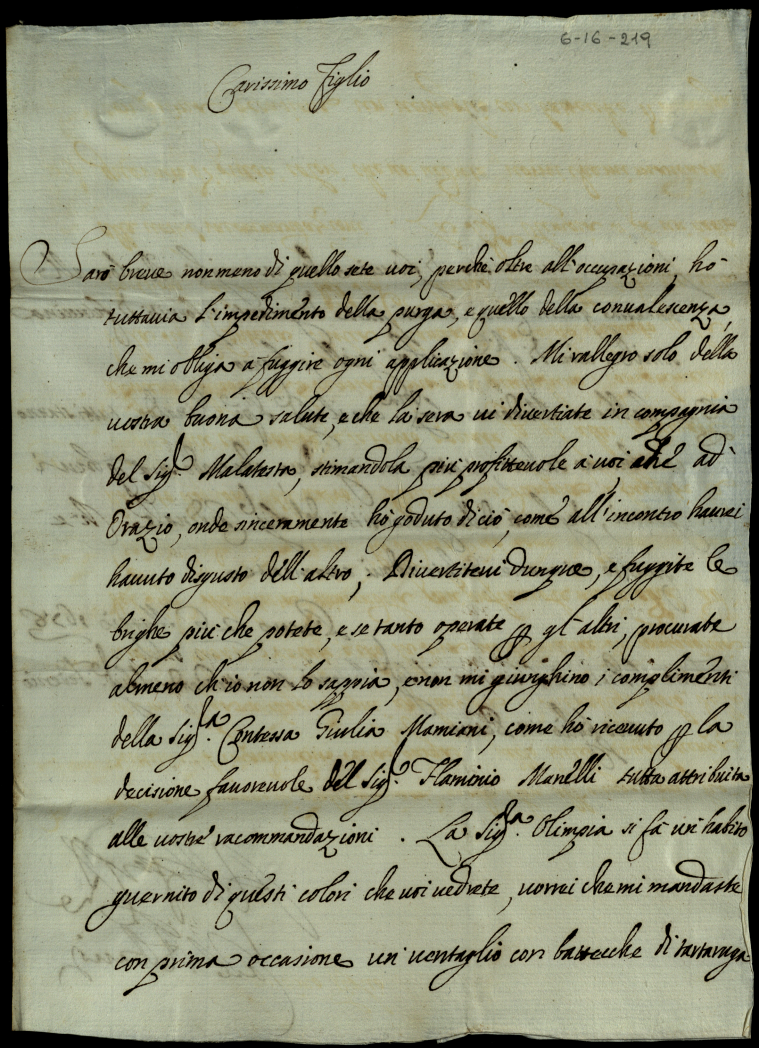 6-16-219
Carissimo Figlio
Sarò breve non meno di quello sete voi, perche oltre all'occupazioni hò
tuttavia l'impedimento della purga, e quello della convalescenza,
che mi obliga a fuggire ogni applicazione. Mi rallegro solo della
vostra buona salute, e che la sera vi divertiate in compagnia
del Sig.r Malatesta, stimandola più profittevole à voi, che ad
Orazio, onde sinceramente hò goduto di ciò, come all'incontro haurei
hauuto disgusto dell'altro. Divertitevi dunque, e fuggite le
brighe più che potete, e se tanto operate p gl'altri, procurate
almeno ch'io non lo sappia, e non mi giunghino i complimenti
della Sig.ra Contessa Giulia Mamiani, come hò riceuuto p la
decisione favorevole del Sig.r Flaminio Manelli tutta attribuita
alle vostre racommandazioni. La Sig.ra Olimpia si fà un habito
guernito di questi colori che voi vedrete, vorrei che mi mandaste
con prima occasione un ventaglio con bacchette di tartaruga